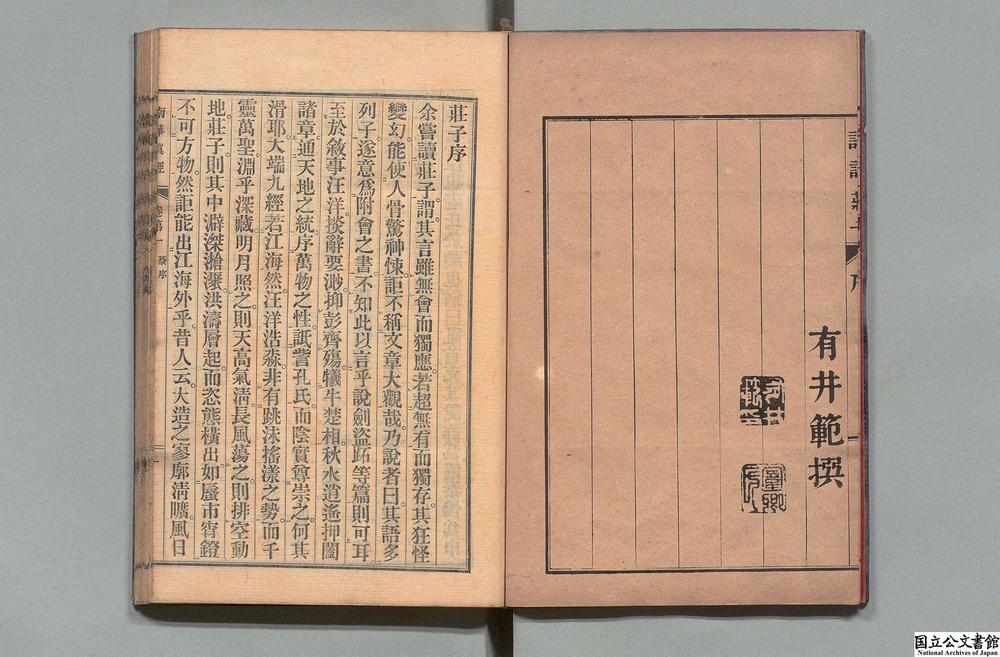 有井範撰
莊子序
余嘗讀莊子謂其言雖無會而獨應若超無有而獨存其狂怪
變幻能使人骨驚神悚詎不稱文章大觀哉乃說者曰其語多
列子遂意爲附會之書不知此以言乎說劍盜跖等篇則可耳
至於敘事汪洋掞辭要渺抑彭齊殤犧牛楚相秋水逍遙押闔
諸章通天地之統序萬物之性詆訾孔氏而陰實尊崇之何其
滑耶大端九經若江海然汪洋浩淼非有跳沫搖漾之勢而千
靈萬聖淵乎深藏明月照之則天高氣淸長風蕩之則排空動
地莊子則其中澼深滄瀑洪濤層起而恣態橫出如蜃市宵鐙
不可方物然詎能出江海外乎昔人云大造之寥廓淸曠風日
南華眞經
卷第一
序
国立公文書館
National Archives of Japan